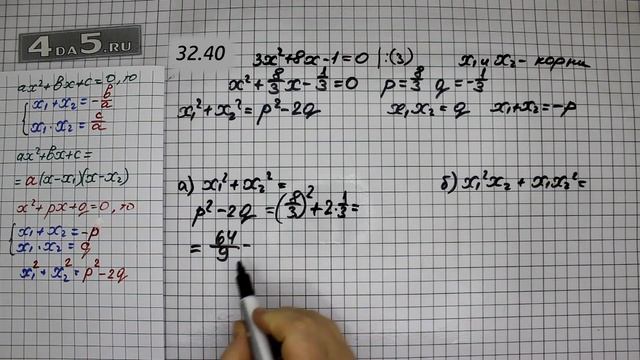 4DA5.RU
ax²+bx+c=0, то
x₁+x₂=-b/a
x₁·x₂=c/a
ax²+bx+c=
=a(x-x₁)(x-x₂)
x²+px+q=0, то
x₁+x₂=-p
x₁·x₂=q
x₁²+x₂²=p²-2q
32.40
3x²+8x-1=0 |:(3) x₁ и x₂ - корни
x²+8/3x-1/3=0 p=8/3 q=-1/3
x₁²+x₂²=p²-2q x₁x₂=q x₁+x₂=-p
а) x₁²+x₂²= б) x₁²x₂+x₁x₂²=
p²-2q =(8/3)²+2·1/3=
=64/9-